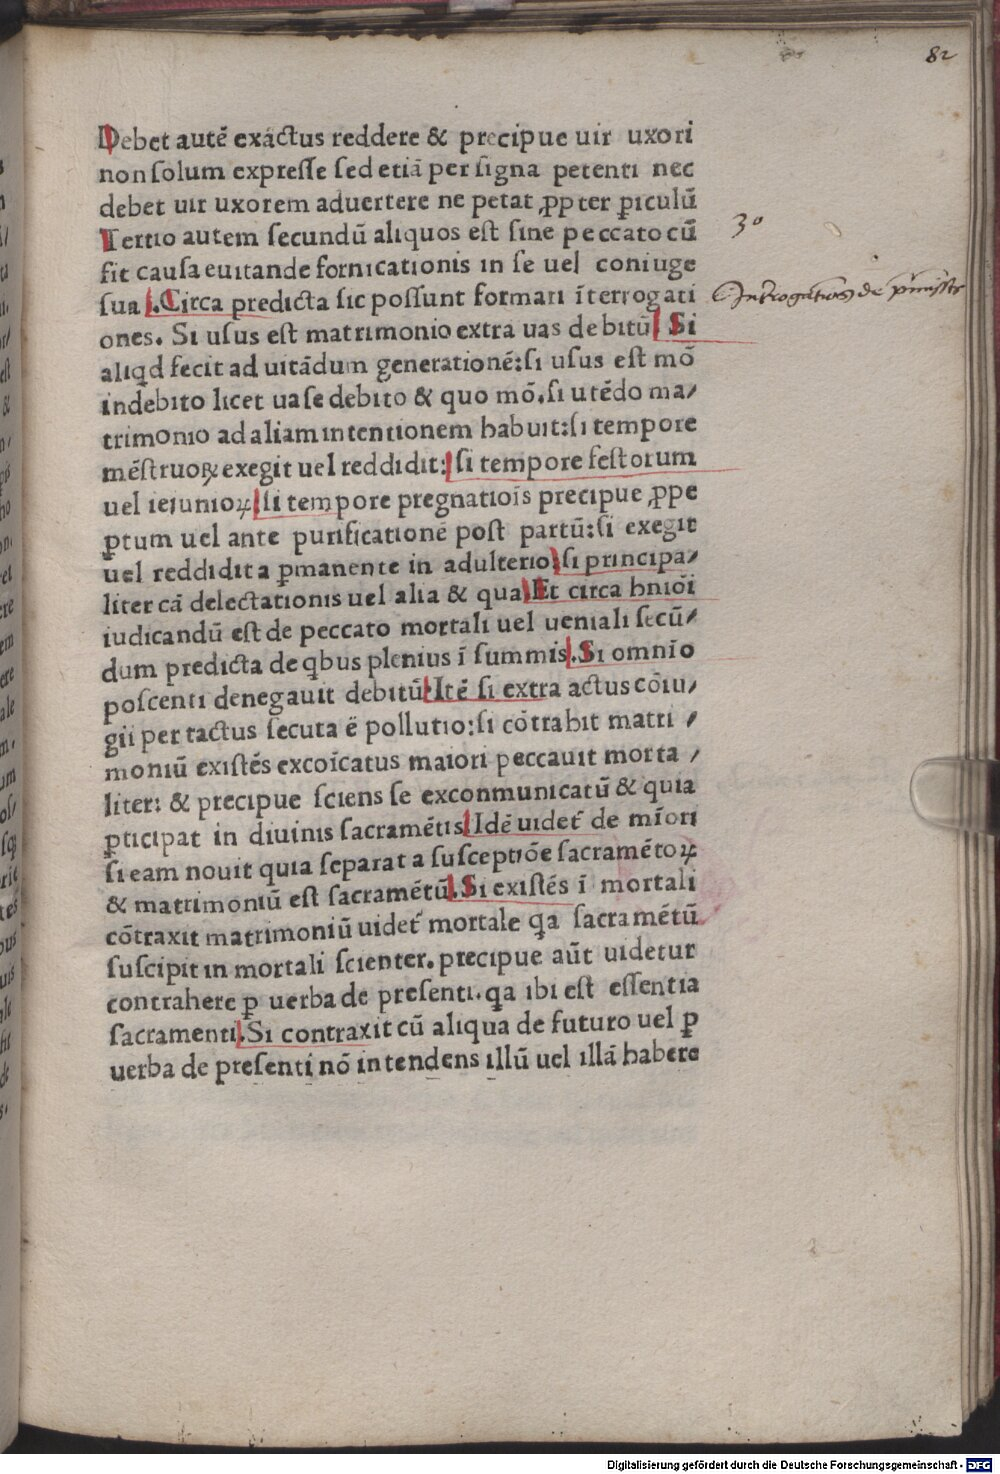 82
Debet autē exactus reddere & precipue uir uxori
non ſolum expreſſe ſed etiā per ſigna petenti nec
debet uir uxorem aduertere ne petat ꝓpter ꝑiculū
Tertio autem ſecundū aliquos eſt ſine peccato cū
3º
fit cauſa euitande fornicationis in ſe uel coniuge
ſua .Circa predicta ſic poſſunt formari īterrogati
ones. Si uſus eſt matrimonio extra uas debitū Si
aliqd fecit ad uitādum generationē: ſi uſus eſt mō
indebito licet uaſe debito & quo mō. ſi utēdo ma/
trimonio ad aliam intentionem habuit: ſi tempore
mēſtruoꝝ exegit uel reddidit: ſi tempore feſtorum
uel ieiunioꝝ ſi tempore pregnatiōis precipue ꝓpe
ꝑtum uel ante purificationē poſt partū: ſi exegit
uel reddidit a ꝑmanente in adulterio ſi principa/
liter cā delectationis uel alia & qua Et circa hmōi
iudicandū eſt de peccato mortali uel ueniali ſecū/
dum predicta de qbus plenius ī ſummis. Si omnīo
poſcenti denegauit debitū: Itē ſi extra actus cōiu/
gii per tactus ſecuta ē pollutio: ſi cōtrahit matri /
moniū exiſtēs excoīcatus maiori peccauit morta /
liter: & precipue ſciens ſe exconmunicatū & quia
ꝑticipat in diuinis ſacramētis Idē uidet̄ de mīori
ſi eam nouit quia ſeparat a ſuſceptiōe ſacramētoꝝ
& matrimoniū eſt ſacramētū. Si exiſtēs ī mortali
cōtraxit matrimoniū uidet̄ mortale qa ſacramētū
ſuſcipit in mortali ſcienter. precipue aūt uidetur
contrahere ꝑ uerba de preſenti. qa ibi eſt eſſentia
ſacramenti. Si contraxit cū aliqua de futuro uel ꝑ
uerba de preſenti nō intendens illū uel illā habere
Digitalisierung gefördert durch die Deutsche Forschungsgemeinschaft - DFG